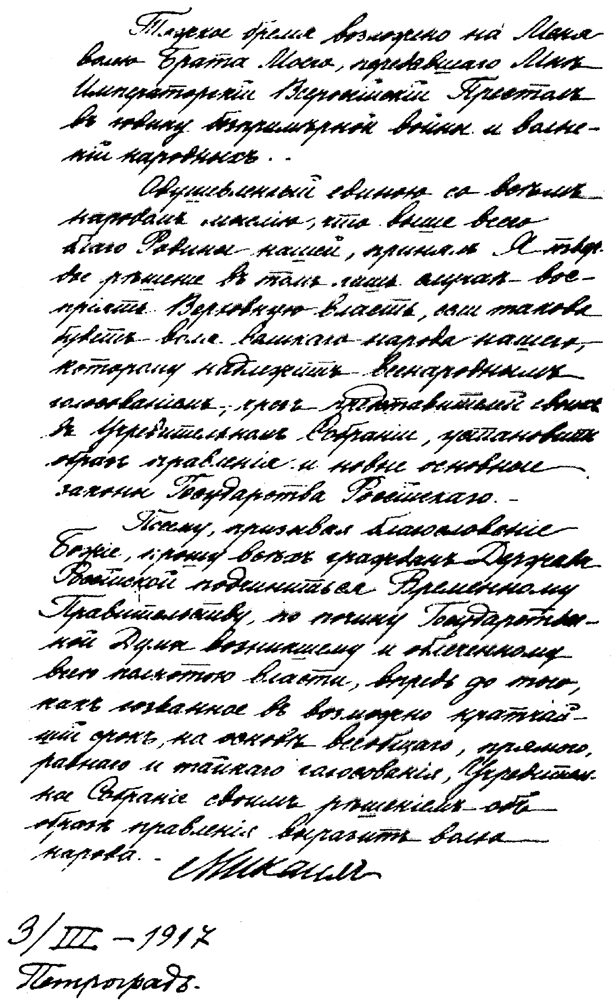 Тяжкое бремя возложено на Меня
волею Брата Моего, передавшаго Мнѣ
Императорскій Всероссійскій Престолъ
въ годину безпримѣрной войны и волне-
ній народныхъ..
Одушевленный единою со всѣмъ
народомъ мыслію, что выше всего
благо Родины нашей, принялъ Я твер-
дое рѣшеніе въ томъ лишь случаѣ вос-
пріять Верховную власть, если такова
будетъ воля великаго народа нашего,
которому надлежитъ всенароднымъ
голосованіемъ, чрезъ представителей своихъ
въ Учредительномъ Собраніи, установить
образъ правленія и новые основные
законы Государства Россійскаго. –
Посему, призывая благословеніе
Божіе, прошу всѣхъ гражданъ Державы
Россійской подчиниться Временному
Правительству, по почину Государствен-
ной Думы возникшему и облеченному
всею полнотою власти, впредь до того,
какъ созванное въ возможно кратчай-
шій срокъ, на основѣ всеобщаго, прямого,
равнаго и тайнаго голосованія, Учредитель-
ное Собраніе своимъ рѣшеніемъ объ
образѣ правленія выразитъ волю
народа. –
Михаилъ
3/III – 1917
Петроградъ.